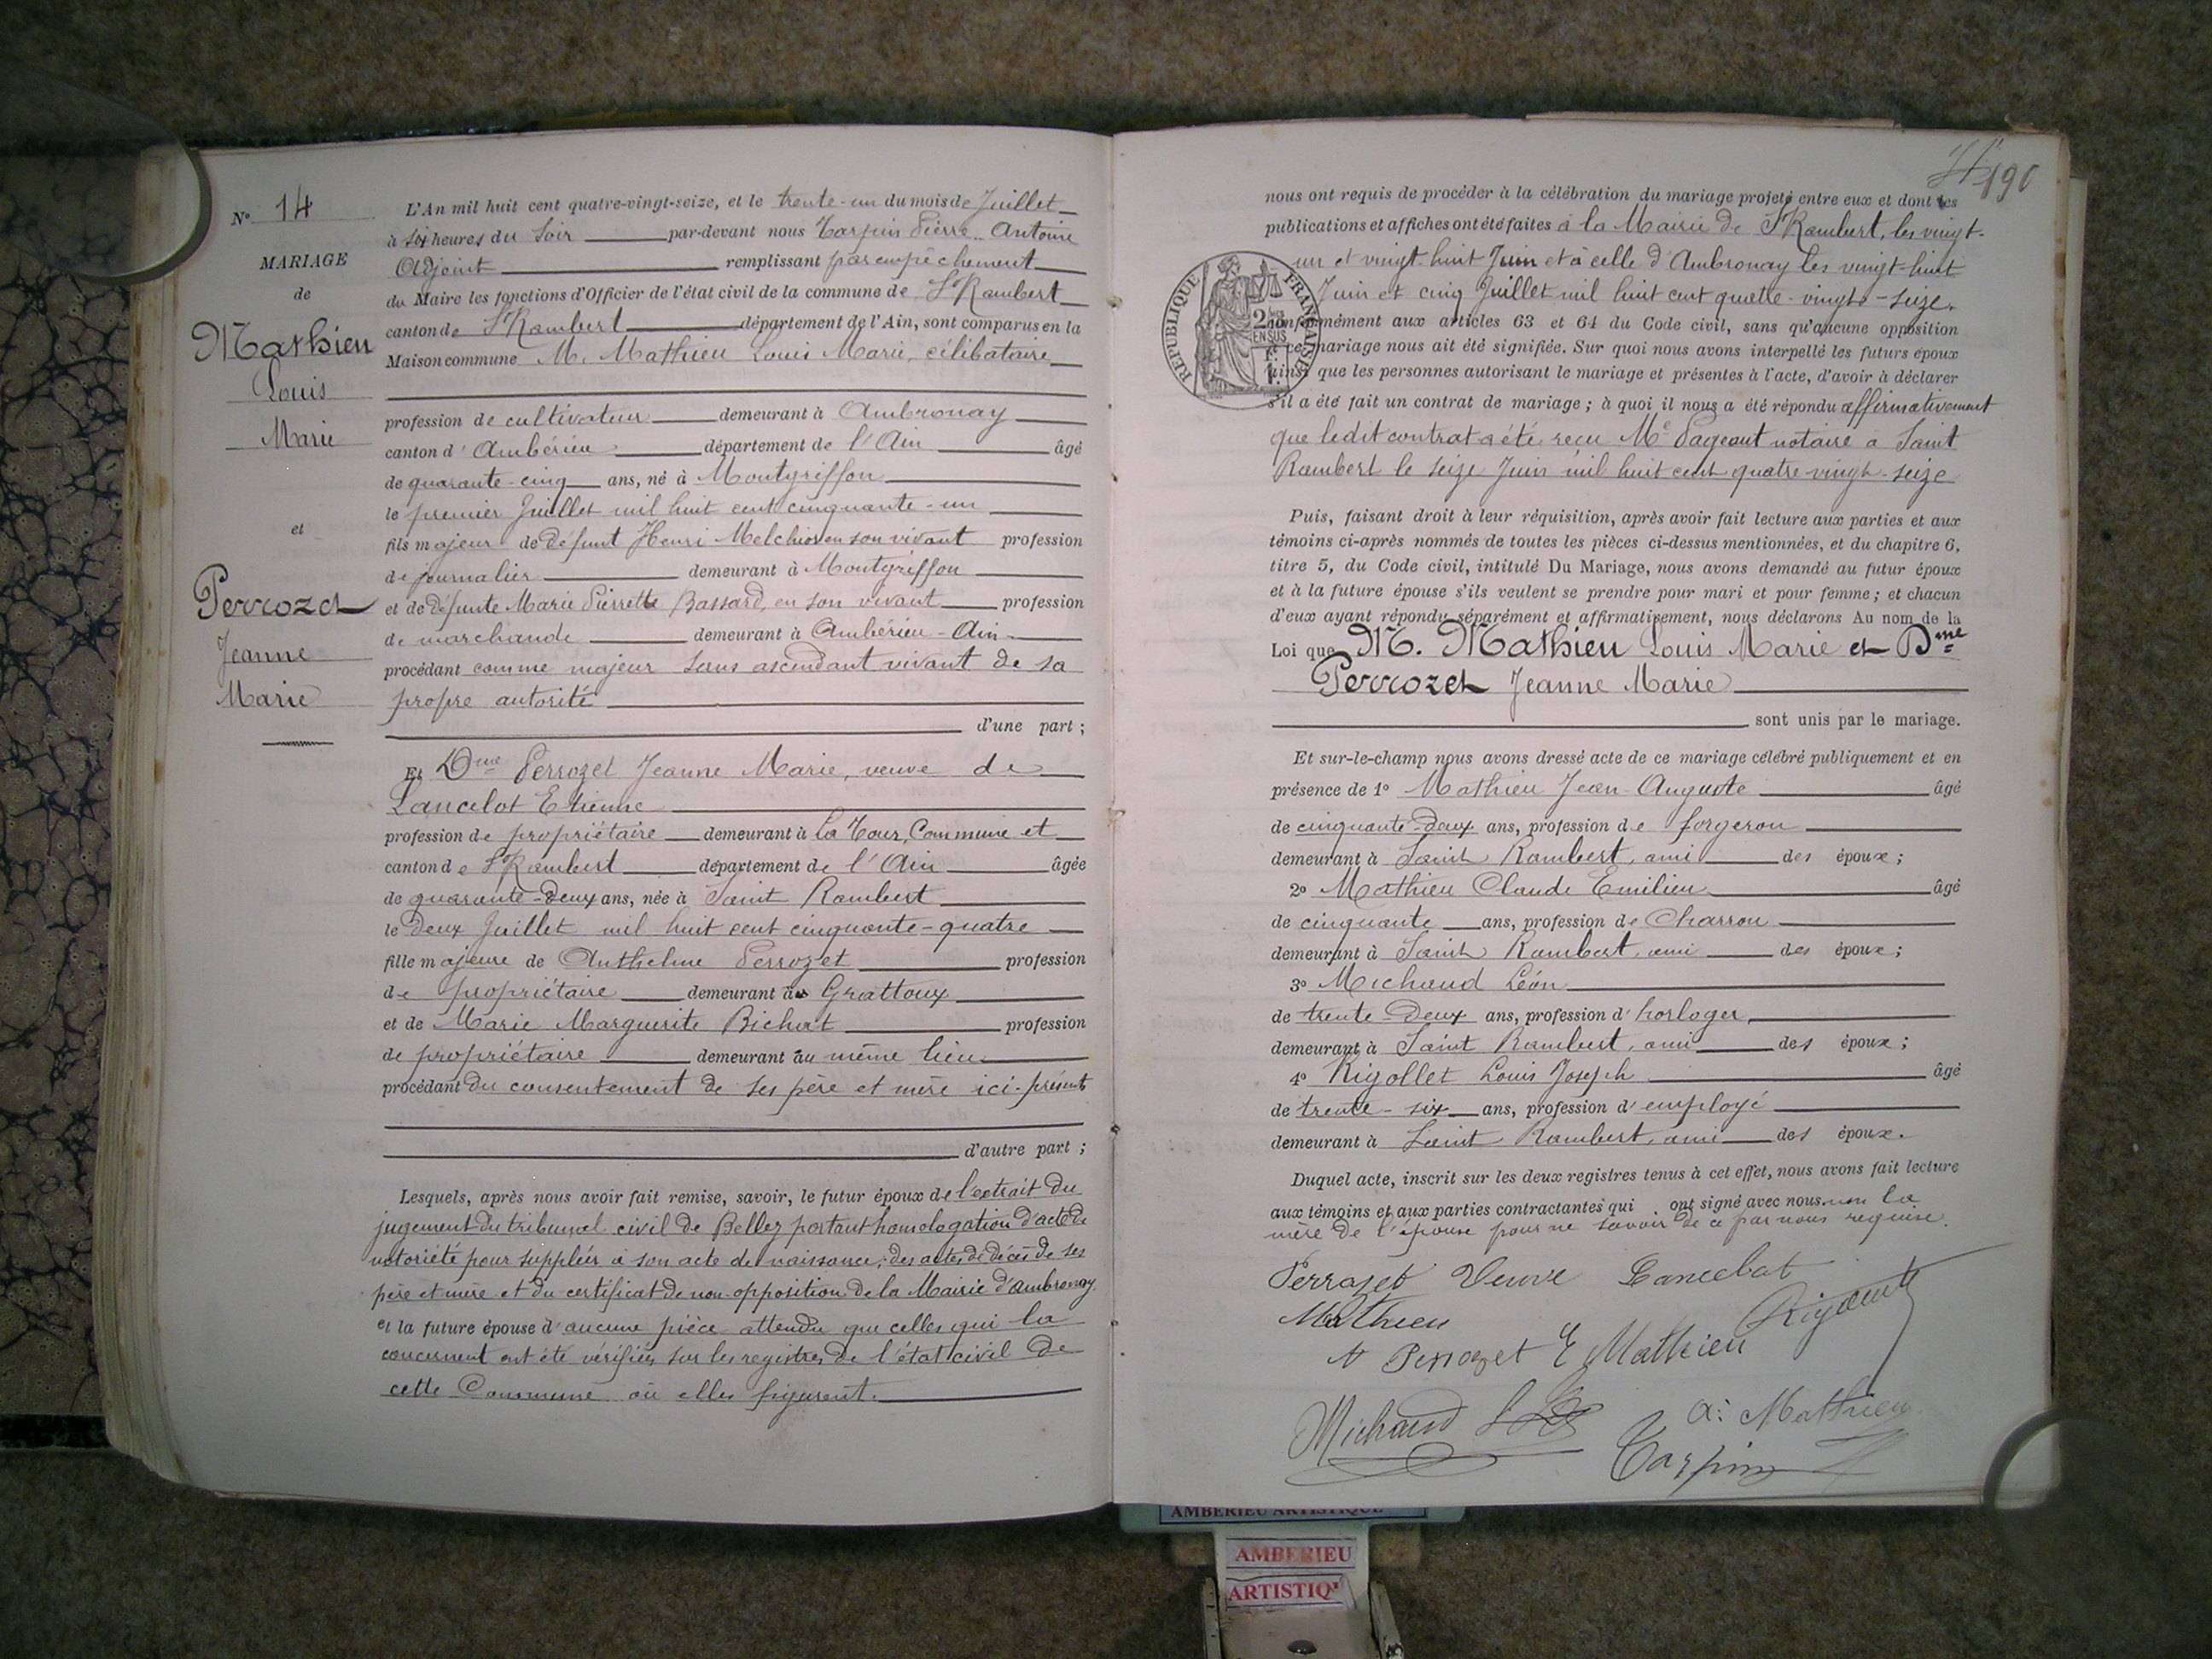 N° 14
MARIAGE
de
Mathieu
Louis
Marie
et
Perrozet
Jeanne
Marie
L'An mil huit cent quatre-vingt-seize, et le trente-un du mois de Juillet
à six heures du soir par-devant nous Tarpin Pierre Antoine
Adjoint remplissant par empêchement
du Maire les fonctions d'Officier de l'état civil de la commune de St Rambert
canton de St Rambert département de l'Ain, sont comparus en la
Maison commune M. Mathieu Louis Marie, célibataire
profession de cultivateur demeurant à Ambronay
canton d'Ambérieu département de l'Ain âgé
de quarante-cinq ans, né à Montgriffon
le premier Juillet mil huit cent cinquante-un
fils majeur de défunt Henri Melchior en son vivant profession
de journalier demeurant à Montgriffon
et de défunte Marie Pierrette Bassard, en son vivant profession
de marchande demeurant à Ambérieu-Ain
procédant comme majeur sans ascendant vivant de sa
propre autorité
d'une part ;
Et Dme Perrozet Jeanne Marie, veuve de
Lancelot Etienne
profession de propriétaire demeurant à la Tour, Commune et
canton de St Rambert département de l'Ain âgée
de quarante-deux ans, née à Saint Rambert
le deux Juillet mil huit cent cinquante-quatre
fille majeure de Anthelme Perrozet profession
de propriétaire demeurant à Grattoux
et de Marie Marguerite Bichat profession
de propriétaire demeurant au même lieu
procédant du consentement de ses père et mère ici-présents
d'autre part ;
Lesquels, après nous avoir fait remise, savoir, le futur époux de l'extrait du
jugement du tribunal civil de Belley portant homologation d'acte de
notoriété pour suppléer à son acte de naissance, des actes de décès de ses
père et mère et du certificat de non-opposition de la Mairie d'Ambronay
et la future épouse d'aucune pièce attendu que celles qui la
concernent ont été vérifiées sur les registres de l'état civil de
cette Commune où elles figurent.
190
nous ont requis de procéder à la célébration du mariage projeté entre eux et dont les
publications et affiches ont été faites à la Mairie de St Rambert, les vingt-
un et vingt-huit Juin et à celle d'Ambronay les vingt-huit
Juin et cinq Juillet mil huit cent quatre-vingt-seize.
conformément aux articles 63 et 64 du Code civil, sans qu'aucune opposition
à ce mariage nous ait été signifiée. Sur quoi nous avons interpellé les futurs époux
ainsi que les personnes autorisant le mariage et présentes à l'acte, d'avoir à déclarer
s'il a été fait un contrat de mariage ; à quoi il nous a été répondu affirmativement
que ledit contrat a été reçu Me Pageaut notaire à Saint
Rambert le seize Juin mil huit cent quatre-vingt-seize
RÉPUBLIQUE FRANÇAISE
Puis, faisant droit à leur réquisition, après avoir fait lecture aux parties et aux
témoins ci-après nommés de toutes les pièces ci-dessus mentionnées, et du chapitre 6,
titre 5, du Code civil, intitulé Du Mariage, nous avons demandé au futur époux
et à la future épouse s'ils veulent se prendre pour mari et pour femme ; et chacun
d'eux ayant répondu séparément et affirmativement, nous déclarons Au nom de la
Loi que M. Mathieu Louis Marie et Dme
Perrozet Jeanne Marie
sont unis par le mariage.
Et sur-le-champ nous avons dressé acte de ce mariage célébré publiquement et en
présence de 1° Mathieu Jean Auguste âgé
de cinquante-deux ans, profession de forgeron
demeurant à Saint Rambert, ami des époux ;
2° Mathieu Claude Emilien âgé
de cinquante ans, profession de Charron
demeurant à Saint Rambert, ami des époux ;
3° Michaud Léon
de trente deux ans, profession d'horloger
demeurant à Saint Rambert, ami des époux ;
4° Rigollet Louis Joseph âgé
de trente-six ans, profession d'employé
demeurant à Saint Rambert, ami des époux.
Duquel acte, inscrit sur les deux registres tenus à cet effet, nous avons fait lecture
aux témoins et aux parties contractantes qui ont signé avec nous non la
mère de l'épouse pour ne savoir de ce par nous requise.
Perrozet Veuve Lancelot
Mathieu
A Perrozet E Mathieu
Michaud L
A. Mathieu
Tarpin
AMBERIEU ARTISTIQUE
AMBERIEU
ARTISTIQ